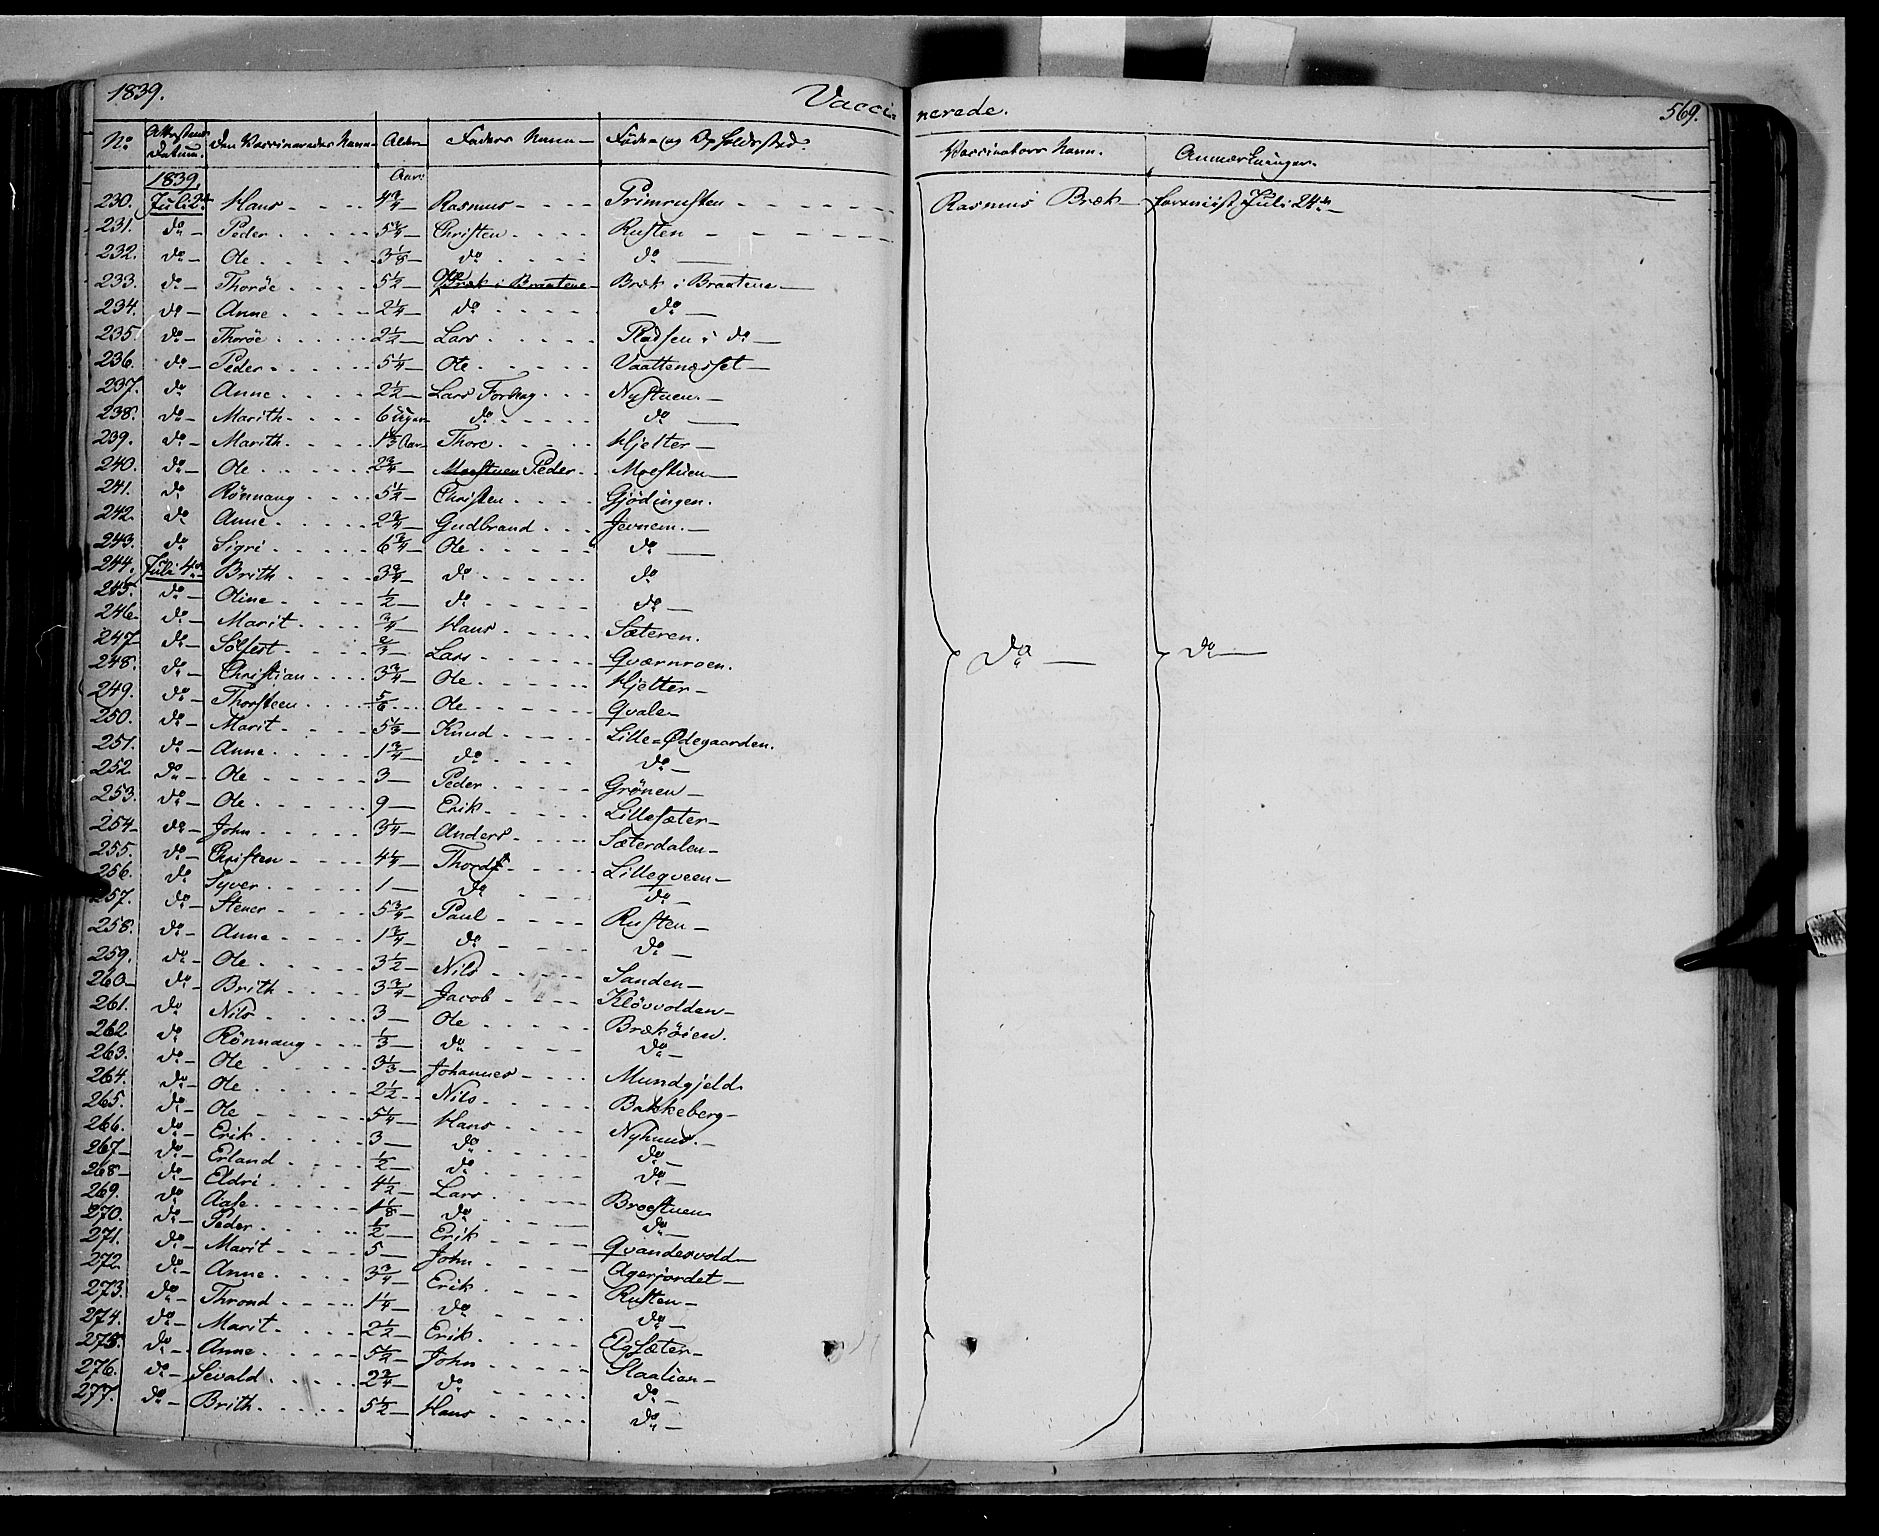 1839. Vacci-nerede. 569.
No Attestens Datum. Den Vaccineredes Navn Alder Faders Navn Føde- og Opholdssted. Vaccinators Navn. Anmærkninger.
1839. Aar
230. Juli Hans 4 3/4 Rasmus Primrusten Rasmus Bræk Juli 24de
231. do Peder 5 3/4 Christen Rusten
232. do Ole 3 1/8 do do
233. do Thoröe 5 1/2 Ole Bræk i Braatene Bræk i Braatene
234. do Anne 2 1/4 do do
235. do Thoröe 2 1/2 Lars Pladsen i do
236. do Peder 5 1/4 Ole Vaattenæsset
237. do Anne 2 1/2 Lars Forbag Nystuen.
238. do Marith 6 Uger do do
239. do Marith 1 2/3 Aar Thore Hjelter
240. do Ole 2 3/4 Moestuen Peder Moestuen
241. do Rönnaug 5 1/2 Christen Gjödingen.
242. do Anne 2 3/4 Gudbrand Jevnem.
243. do Sigri 6 3/4 Ole do
244. Juli 4de Brith 3 3/4 do do
245. do Oline 1/2 do do
246. do Marit 3/4 Hans Sæteren.
247 do Solfest 2/3 Lars Qværnroen.
248. do Christian 3 3/4 Ole Hjelter
249. do Thorsteen 5/6 Ole Qvale
250. do Marit 5 1/3 Knud Lille-Ødegaarden.
251. do Anne 1 3/4 do do
252 do Ole 3 Peder Grönen
253. do Ole 9 Erik Lillesæter
254 do John 3 1/4 Anders Sæterdalen
255. do Christen 4 1/4 Thord Lilleqveen
256. do Syver 1 do do
257. do Stener 5 3/4 Paul Rusten
258. do Anne 1 3/4 do do
259. do Ole 3 1/2 Nils Sanden
260 do Brith 3 3/4 Jacob Klövvolden
261. do Nils 3 Ole Brækøien.
262. do Rönnaug 1/3 do do
263. do Ole 3 1/3 Johannes Mundgjeld
264. do Ole 2 1/2 Nils Bakkeberg
265. do Ole 5 1/4 Hans Nyhuus.
266. do Erik 3 do do
267 do Erland 1/2 do do
268 do Eldri 4 1/2 Lars Broestuen
269. do Aase 1 1/8 do do
270. do Peder 1/2 Erik Qvandesvold
271. do Marit 5 John Agerjordet
272. do Anne 3 3/4 Erik Rusten
273. do Thrond 1 1/4 do do
274. do Marit 2 1/2 Erik Elgsæter
275. do Anne 5 1/2 John Slaalien
276. do Sevald 2 3/4 do do
277. do Brith 5 1/2 Hans do
do do